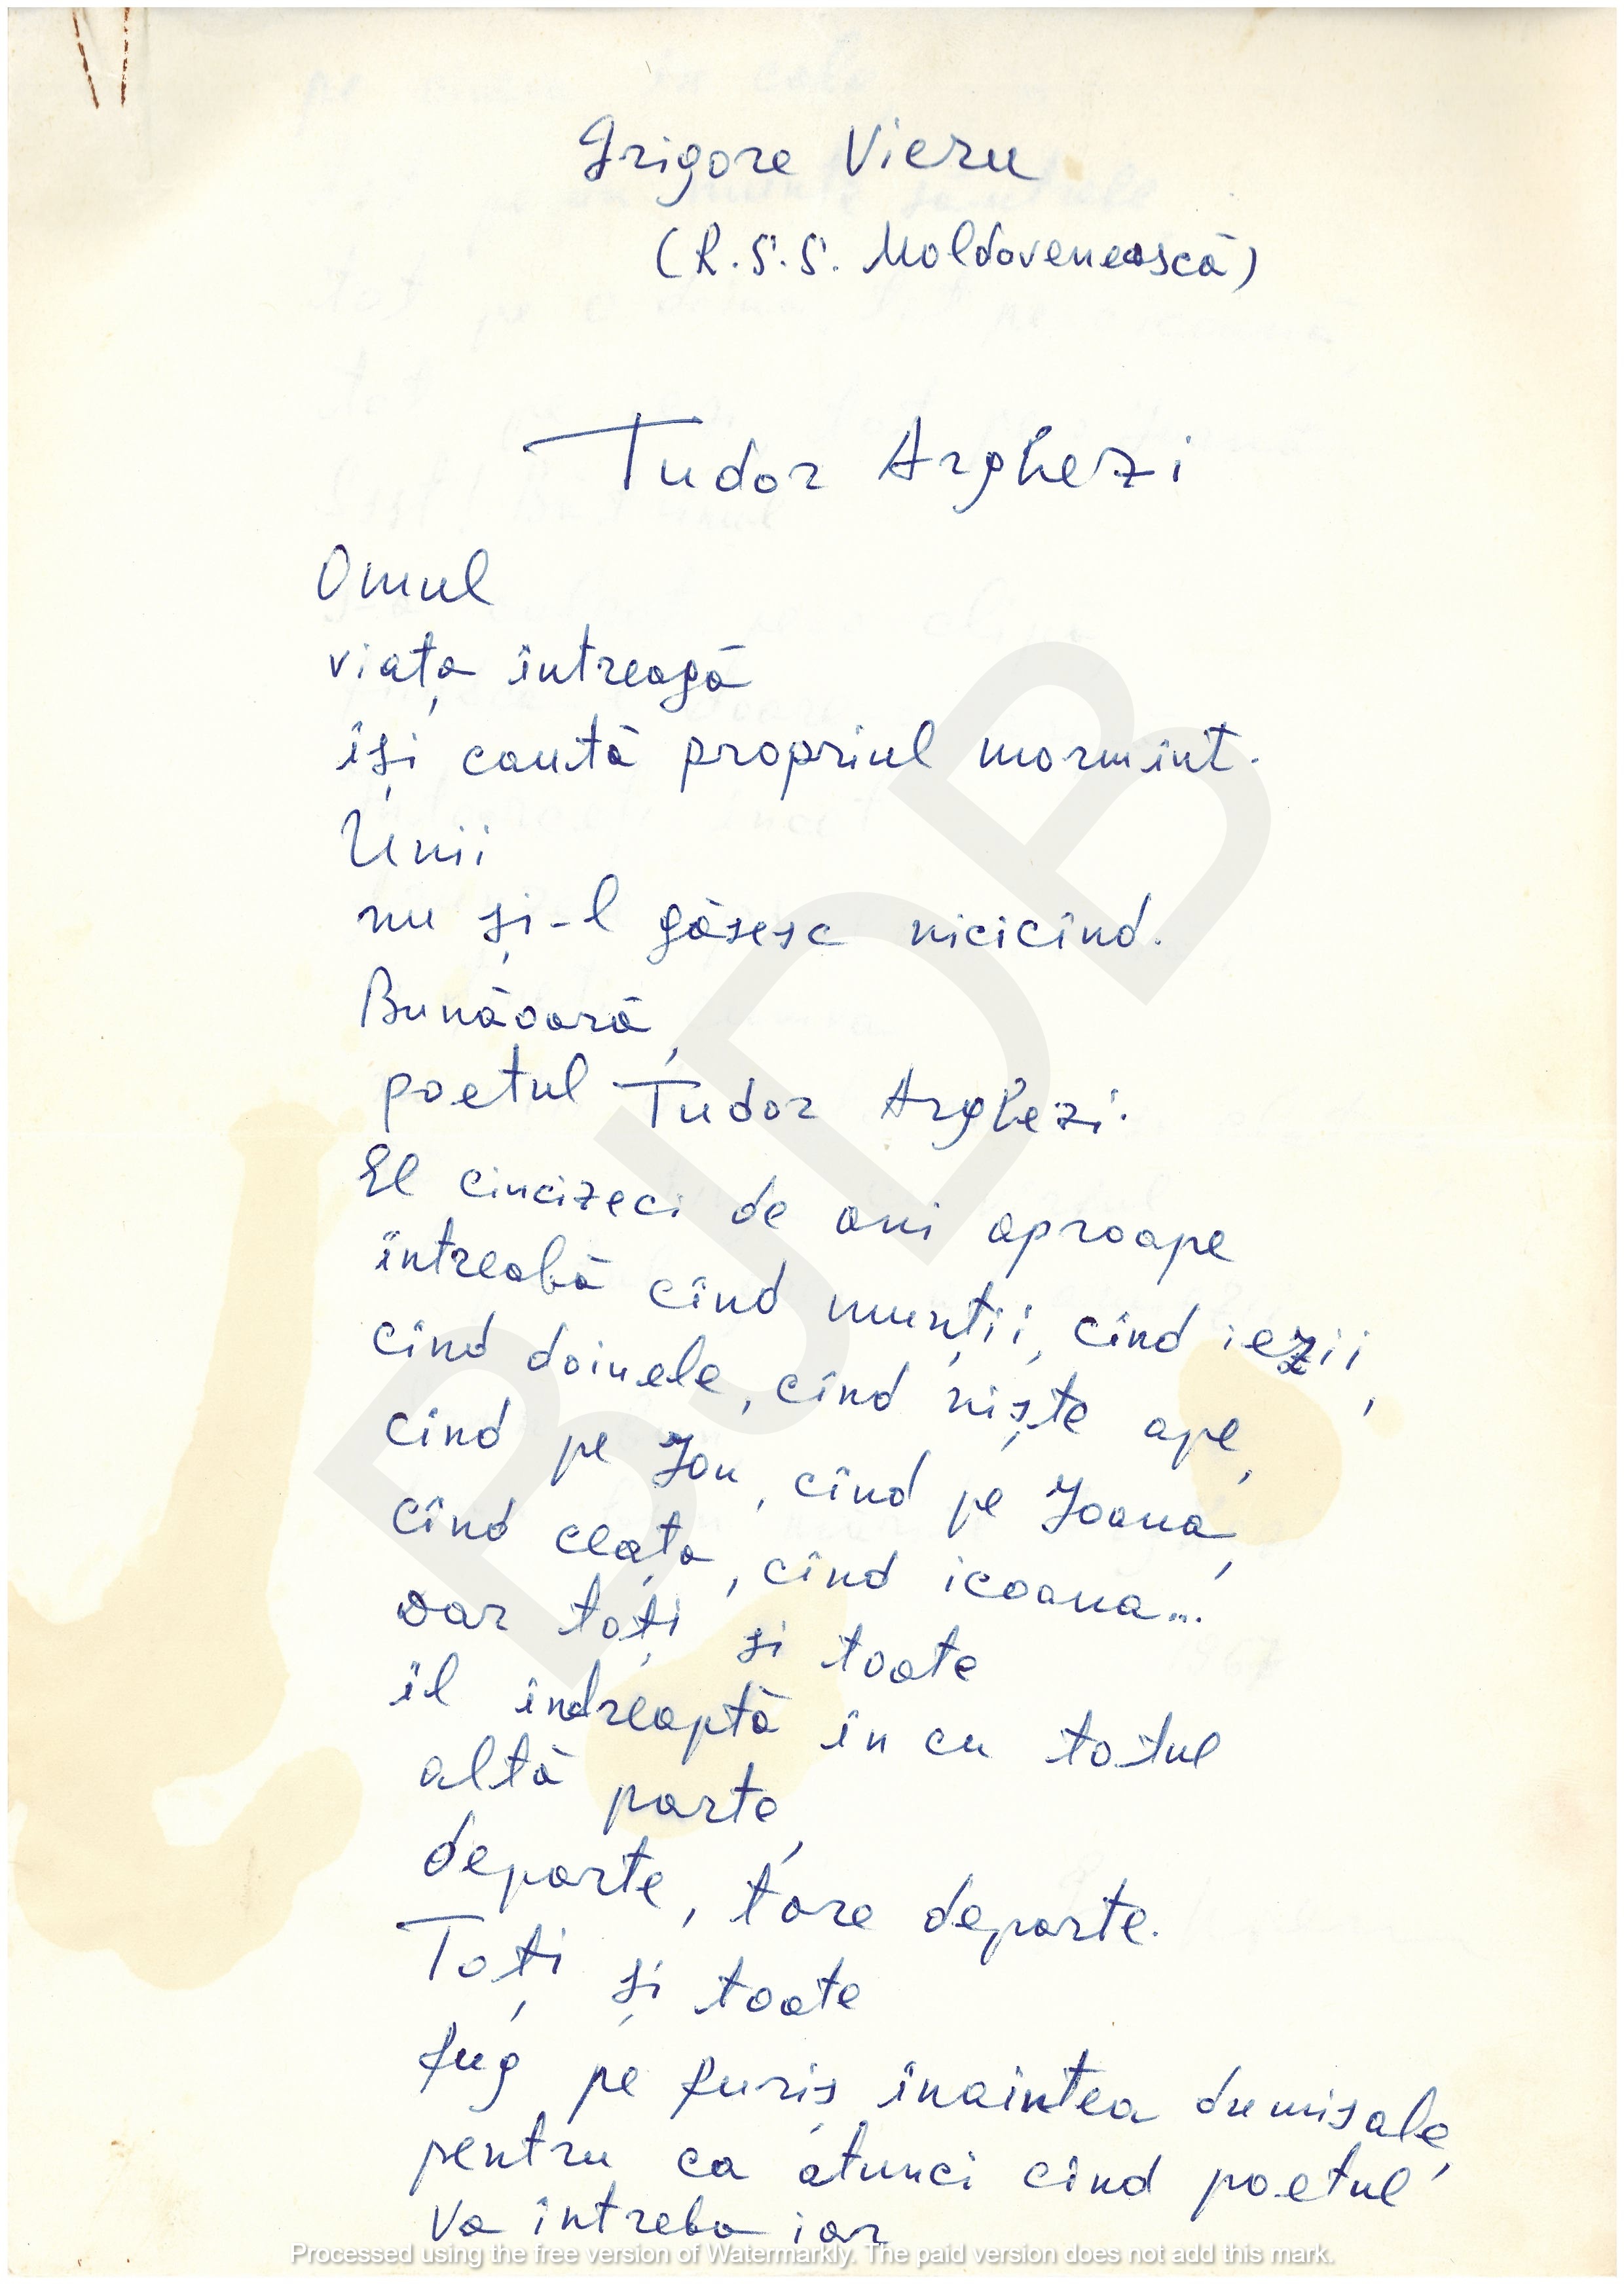 Grigore Vieru
(R.S.S. Moldovenească)
Tudor Arghezi
Omul
viața întreagă
își caută propriul mormînt.
Unii
nu și-l găsesc nicicînd.
Bunăoară,
poetul Tudor Arghezi.
El cincizeci de ani aproape
întreabă cînd munții, cînd iezii,
cînd doinele, cînd niște ape,
cînd pe Ion, cînd pe Ioana,
cînd ceața, cînd icoana...
Dar toți și toate
îl îndreaptă în cu totul
altă parte,
departe, tare departe.
Toți și toate
fug pe furiș înaintea dumisale,
pentru ca atunci cînd poetul
va întreba iar
BJDB
Processed using the free version of Watermarkly. The paid version does not add this mark.